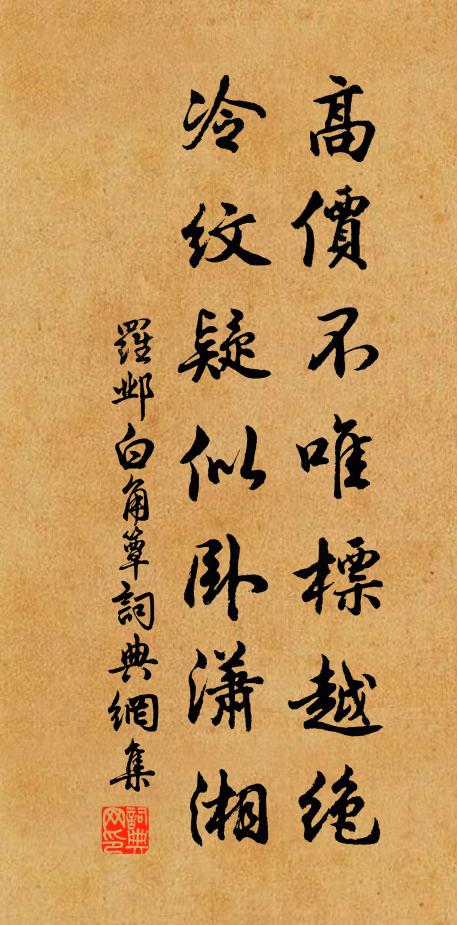 高價不唯標越絶
冷紋疑似卧瀟湘
羅邺白角簟詞典網集
詞典网印